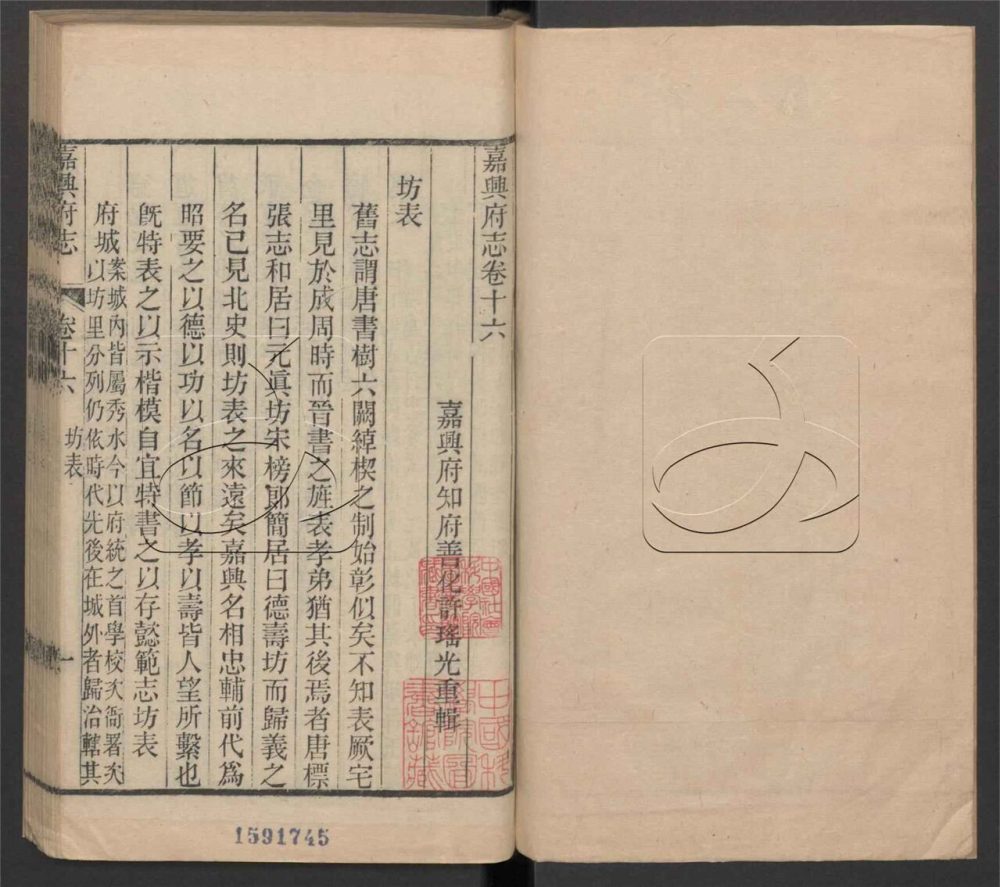 嘉興府志卷十六
嘉興府知府善化許瑤光重輯
坊表
舊志謂唐書樹六闕綽楔之制始彰似矣不知表厥宅
里見於成周時而晉書之旌表孝弟猶其後焉者唐標
張志和居曰元眞坊宋榜郎簡居曰德壽坊而歸義之
名已見北史則坊表之來遠矣嘉興名相忠輔前代爲
昭要之以德以功以名以節以孝以壽皆人望所繫也
旣特表之以示楷模自宜特書之以存懿範志坊表
府城
案城內皆屬秀水今以府統之首學校次衙署次
以坊里分列仍依時代先後在城外者歸治轄其
嘉興府志
卷十六
坊表
一
1591745